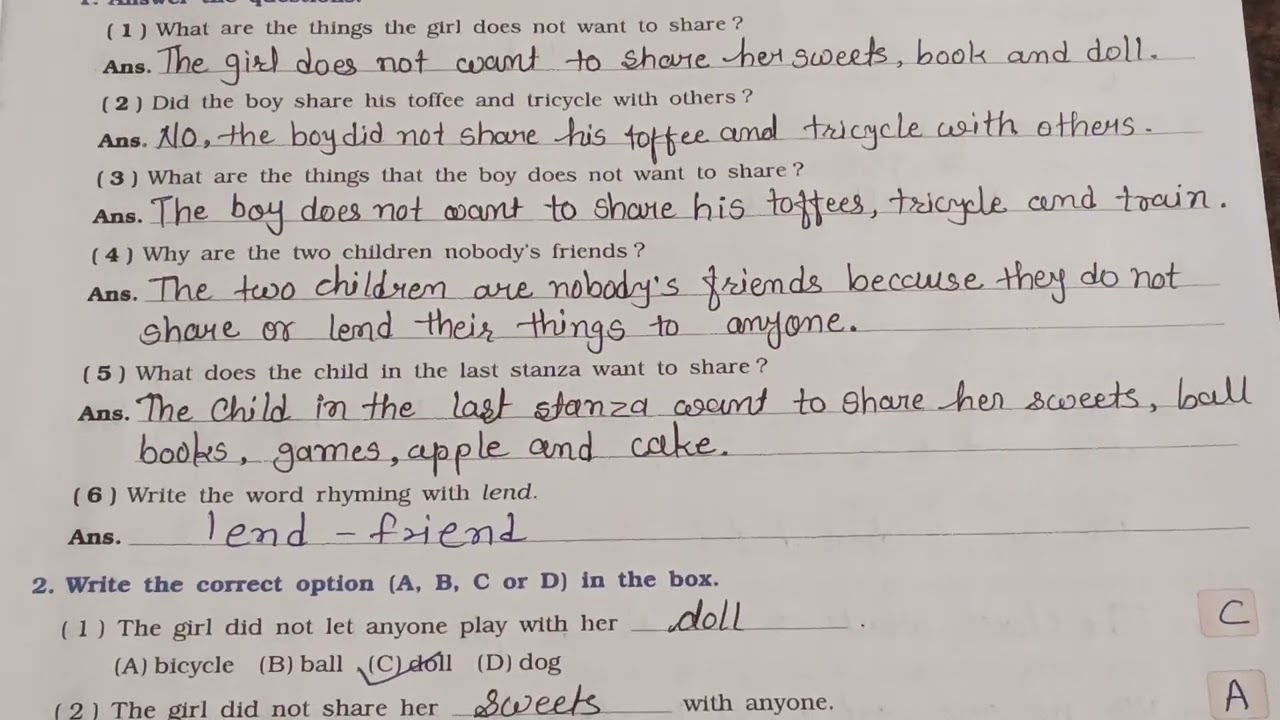 1. Answer the questions.
(1) What are the things the girl does not want to share?
Ans. The girl does not want to share her sweets, book and doll.
(2) Did the boy share his toffee and tricycle with others?
Ans. No, the boy did not share his toffee and tricycle with others.
(3) What are the things that the boy does not want to share?
Ans. The boy does not want to share his toffees, tricycle and train.
(4) Why are the two children nobody's friends?
Ans. The two children are nobody's friends because they do not
share or lend their things to anyone.
(5) What does the child in the last stanza want to share?
Ans. The child in the last stanza want to share her sweets, ball
books, games, apple and cake.
(6) Write the word rhyming with lend.
Ans. lend - friend
2. Write the correct option (A, B, C or D) in the box.
(1) The girl did not let anyone play with her doll. C
(A) bicycle (B) ball (C) doll (D) dog
(2) The girl did not share her sweets with anyone. A